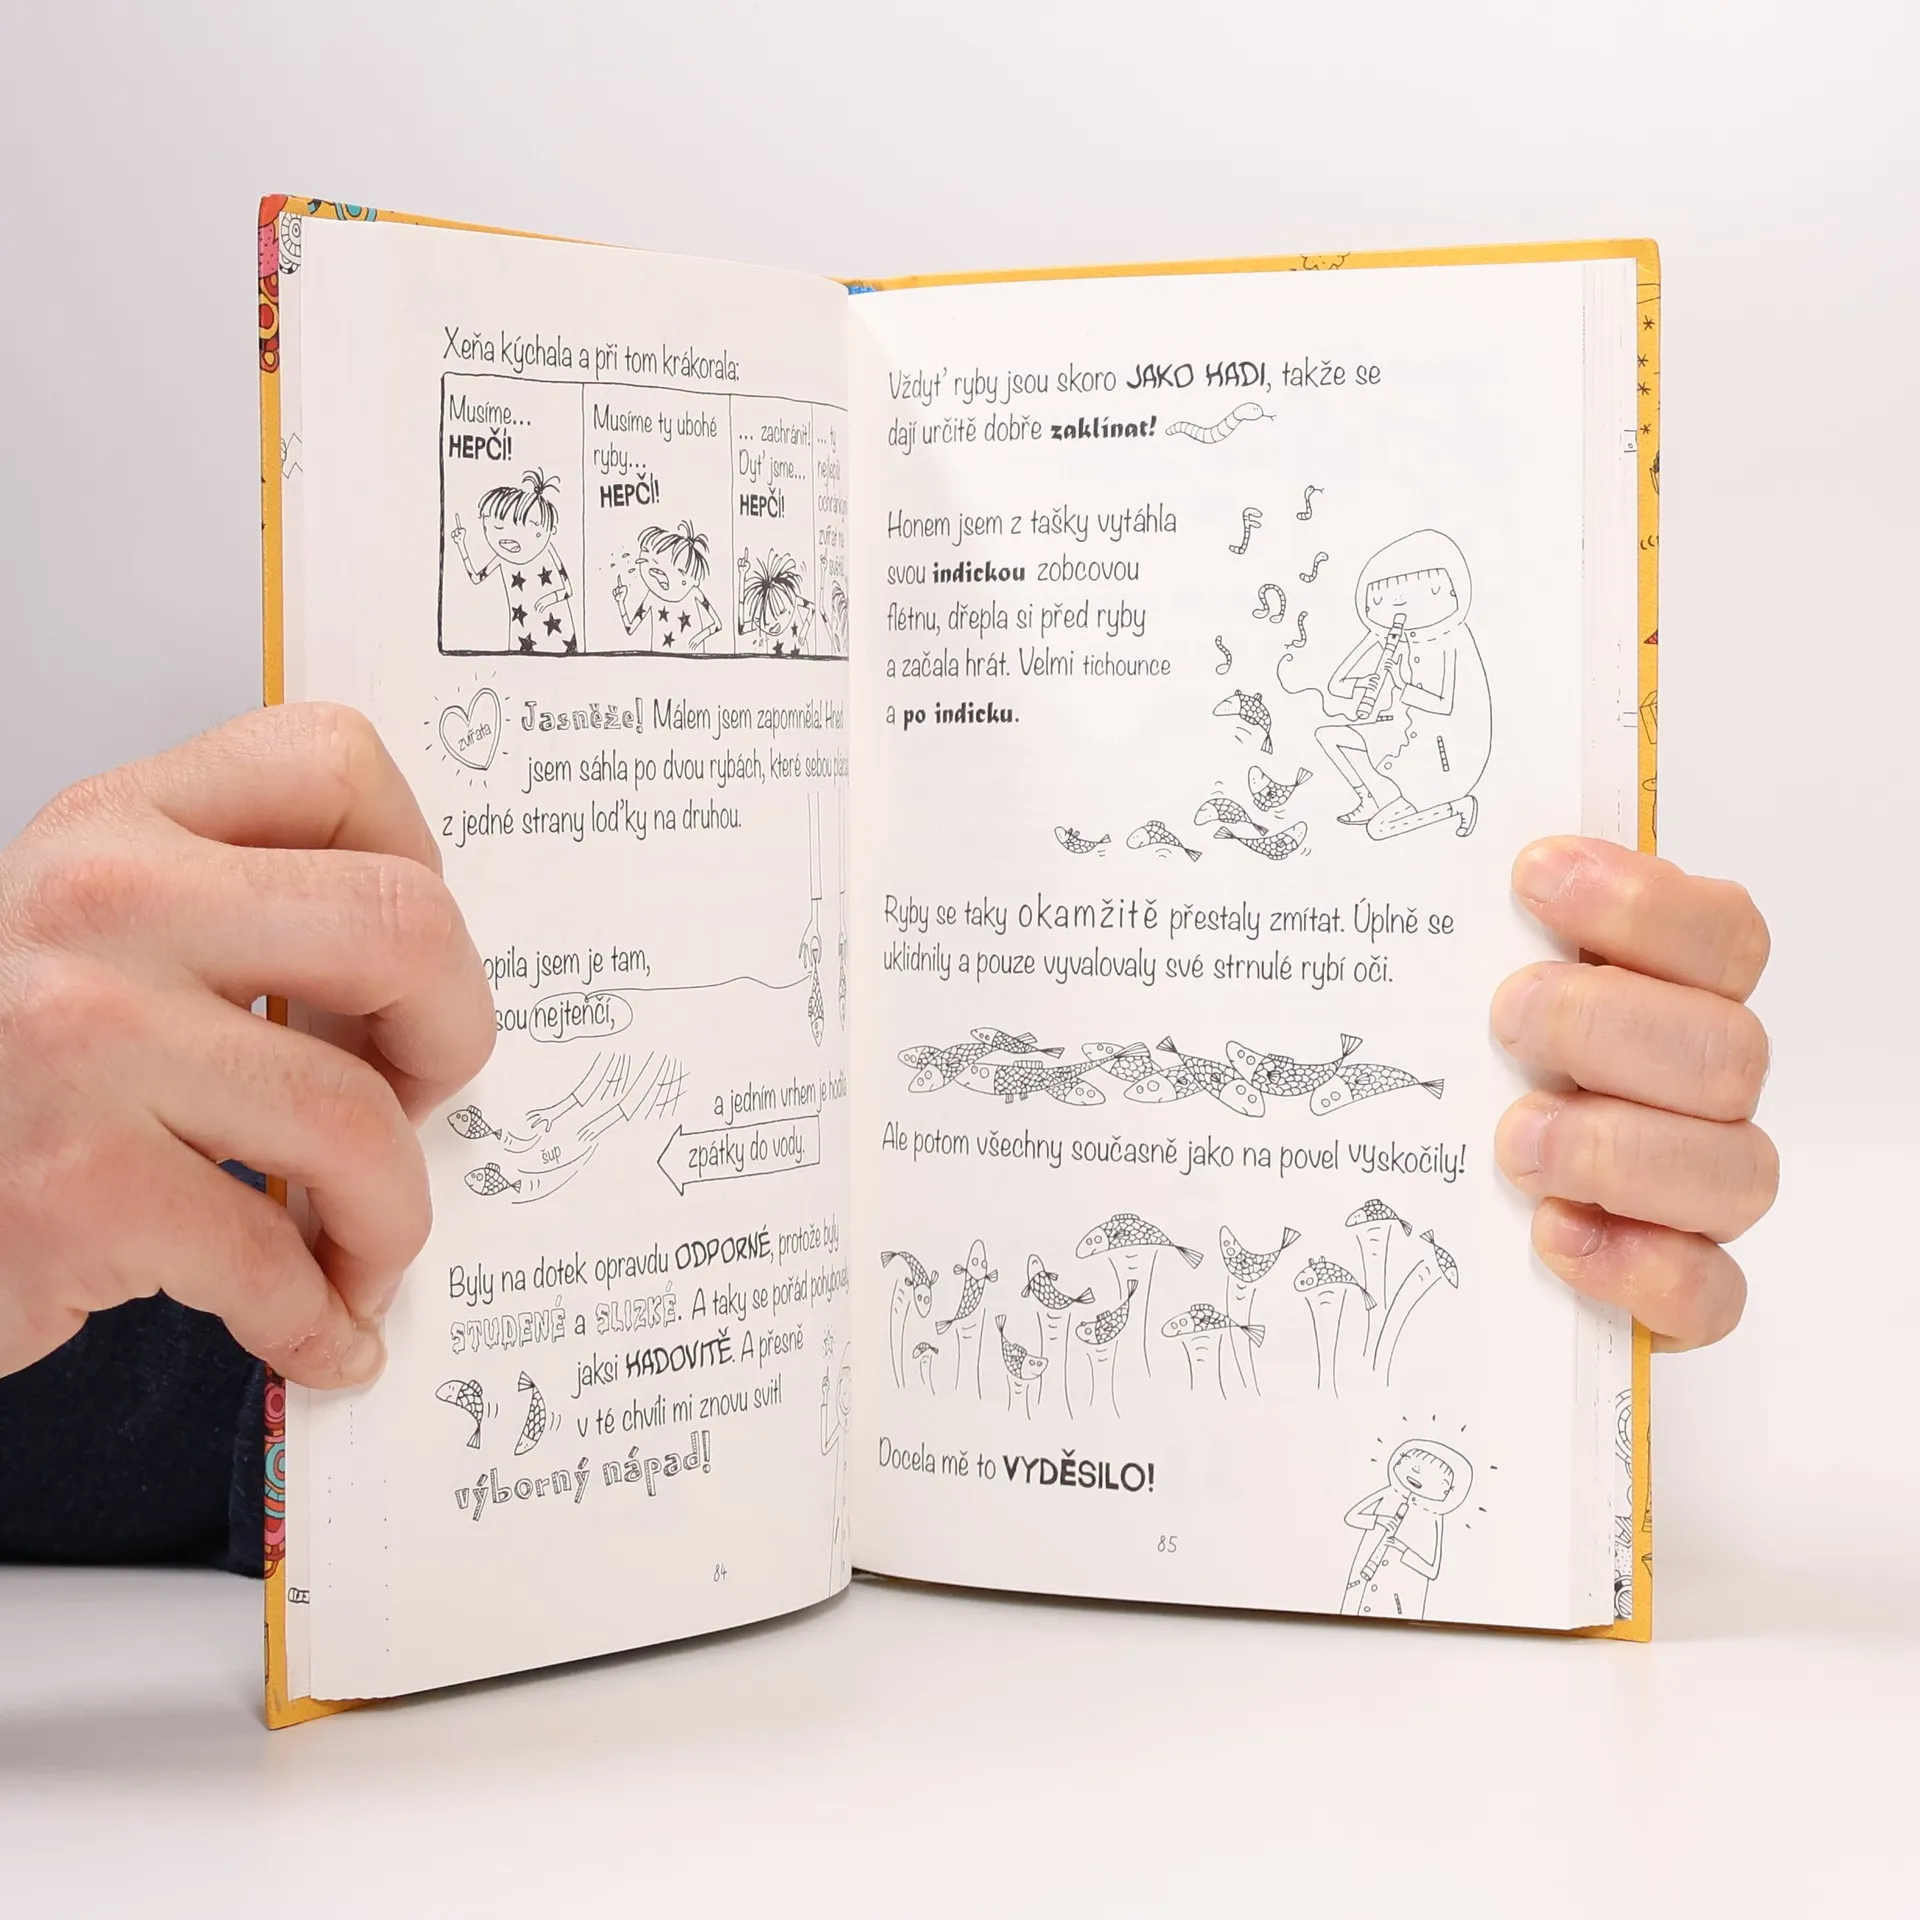 Xeňa kýchala a při tom krákorala:
Musíme...
HEPČÍ!
Musíme ty ubohé
ryby...
HEPČÍ!
... zachránit!
Dyť jsme...
HEPČÍ!
... ty
zvířata
Jasněže! Málem jsem zapomněla! Hned
jsem sáhla po dvou rybách, které sebou
z jedné strany loďky na druhou.
jsem je tam,
nejtenčí,
šup
a jedním vrhem je
zpátky do vody.
Byly na dotek opravdu ODPORNÉ, protože byly
STUDENÉ a SLIZKÉ. A taky se pořád
jaksi HADOVITĚ. A přesně
v té chvíli mi znovu svitl
výborný nápad!
84
Vždyť ryby jsou skoro JAKO HADI, takže se
dají určitě dobře zaklínat!
Honem jsem z tašky vytáhla
svou indickou zobcovou
flétnu, dřepla si před ryby
a začala hrát. Velmi tichounce
a po indicku.
Ryby se taky okamžitě přestaly zmítat. Úplně se
uklidnily a pouze vyvalovaly své strnulé rybí oči.
Ale potom všechny současně jako na povel vyskočily!
Docela mě to VYDĚSILO!
85